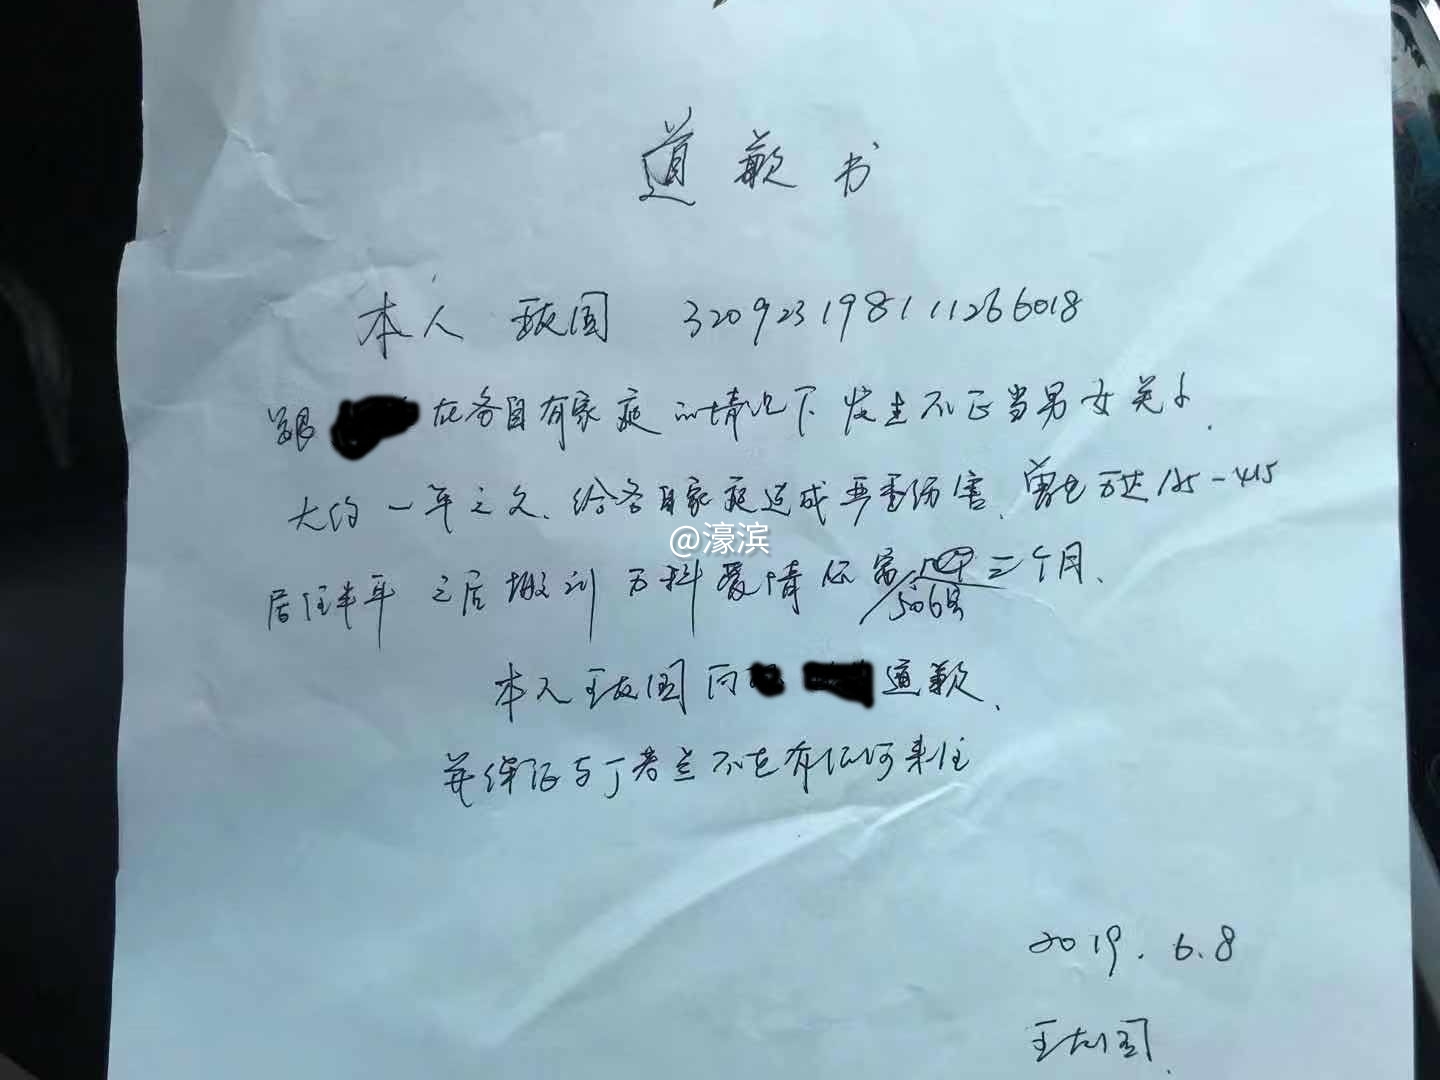 道歉书
本人 王友国 320923198111266018
跟 在各自有家庭的情况下发生不正当男女关
大约一年之久、给各自家庭造成严重伤害、 万达 125-415
@濠滨
居住半年 之后搬到万科爱情 二个月、
506号
本人王友国向 道歉、
并保证与丁 兰不在有任何来往
2019.6.8
王友国